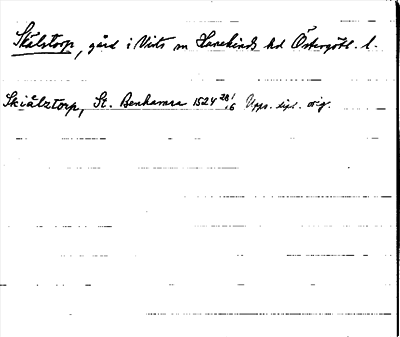 Skälstorp, gård i Vists sn Hanekinds hd Östergötl. l.
Skiälztorp, St. Benhamra 1524 28/6 Upps. dipl. orig.